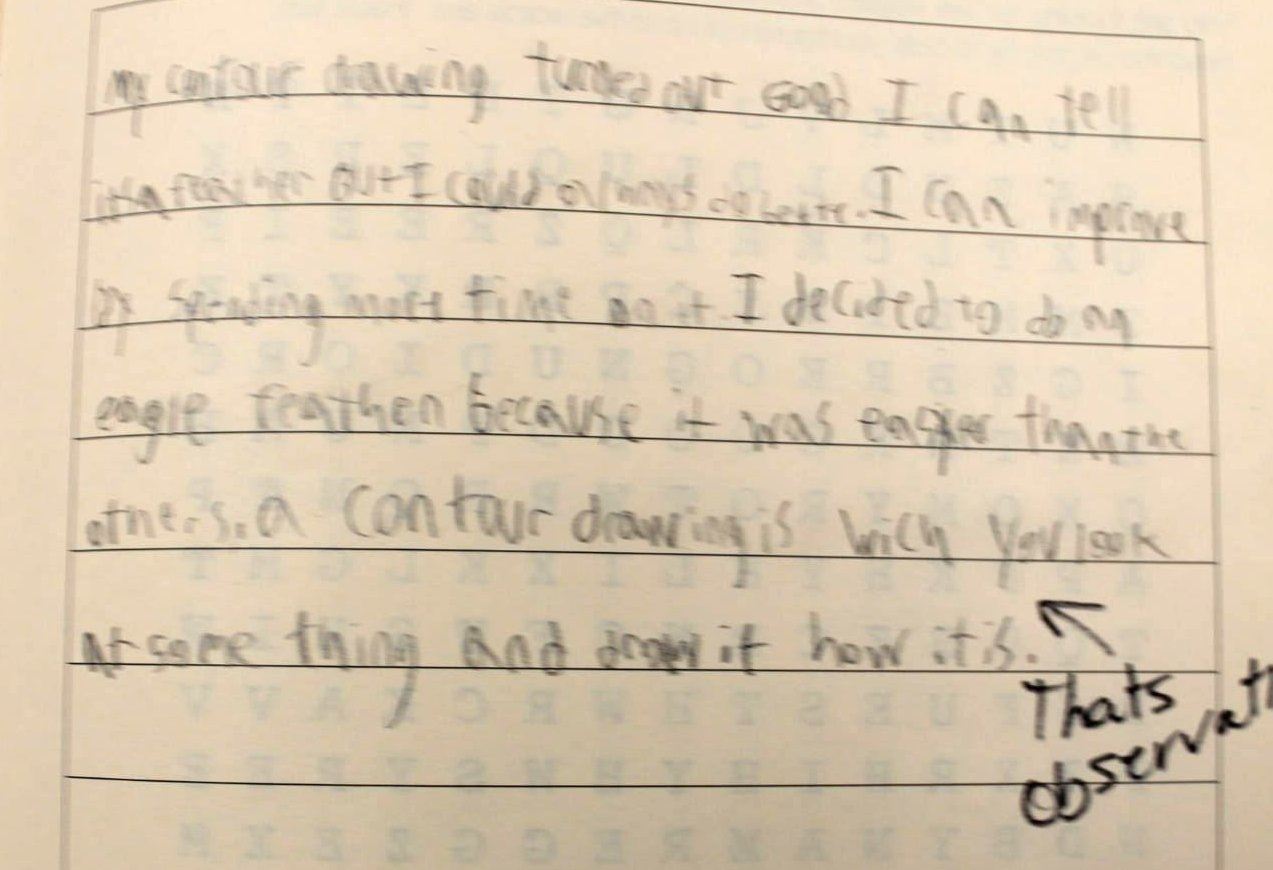 My contour drawing turned out Good I can tell
its a feather But I could always do better. I can improve
by spending more time on it I decided to do an
eagle feathen because it was easier than the
others. a contour drawing is wich you look
At some thing and draw it how it is.
Thats
observati